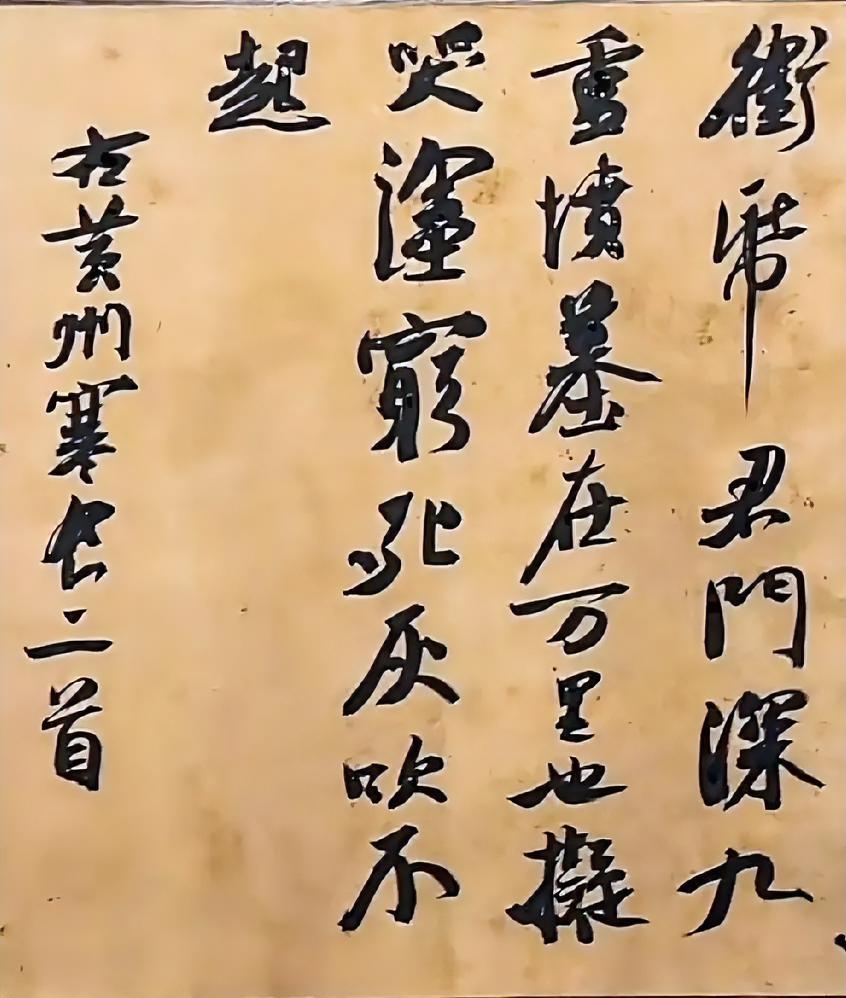 銜帋君門深九
重墳墓在万里也擬
哭塗窮死灰吹不
起
右黄州寒食二首